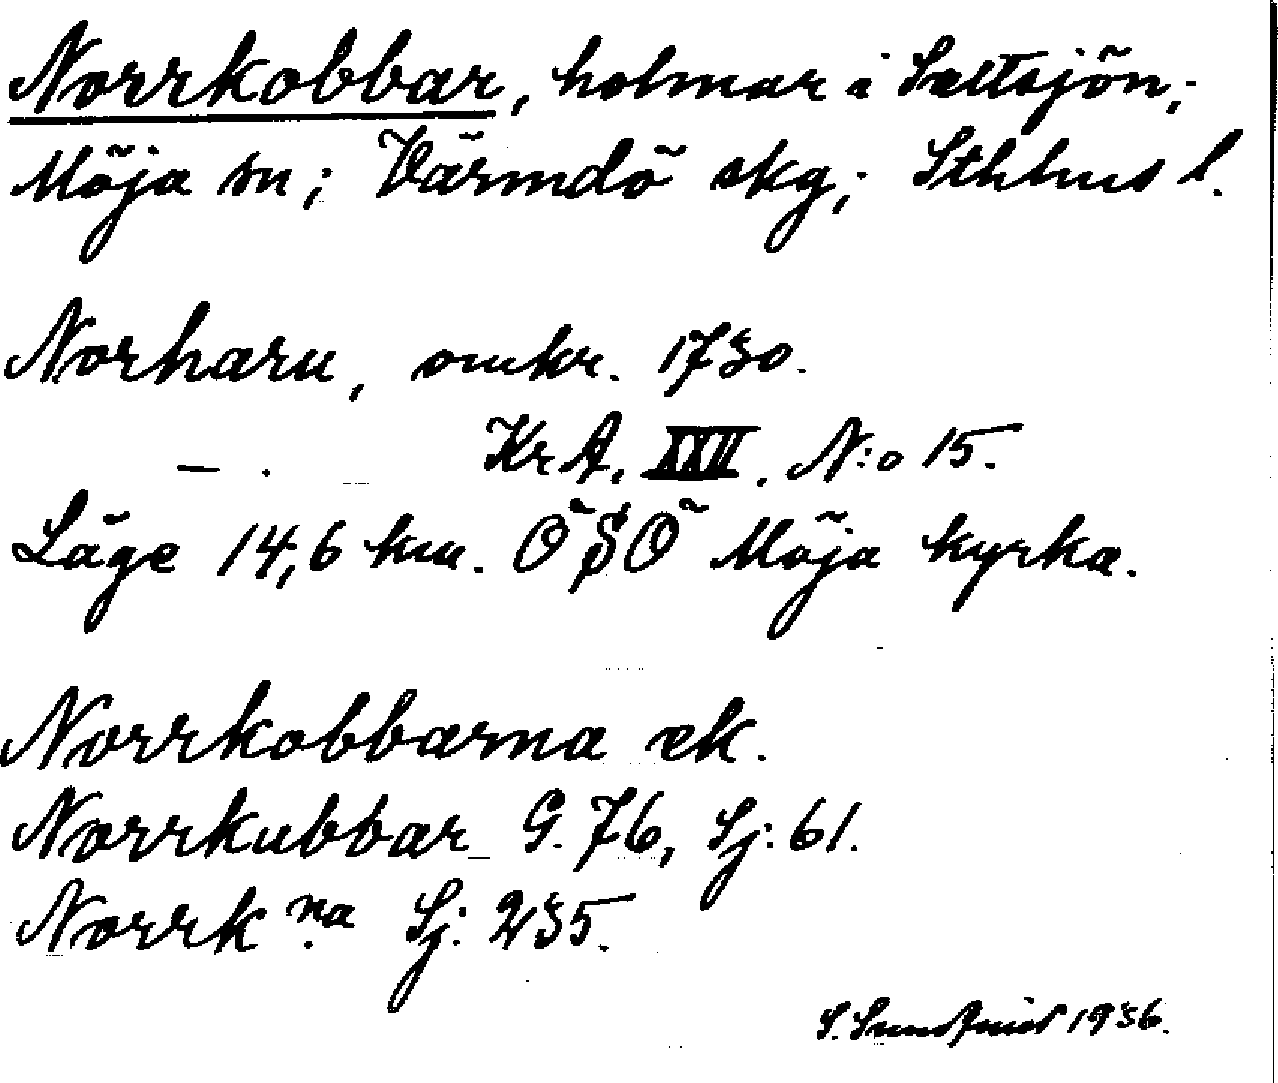 Norrkobbar, holmar i Saltsjön;
Möja sn; Värmdö skg; Sthlms l.
Norharu, omkr. 1730.
— . KrA. XXII. N:o 15.
Läge 14,6 km. ÖSÖ Möja kyrka.
Norrkobbarna ek.
Norrkubbar G. 76, Sj: 61.
Norrk na Sj: 235.
S. Sundquist 1936.